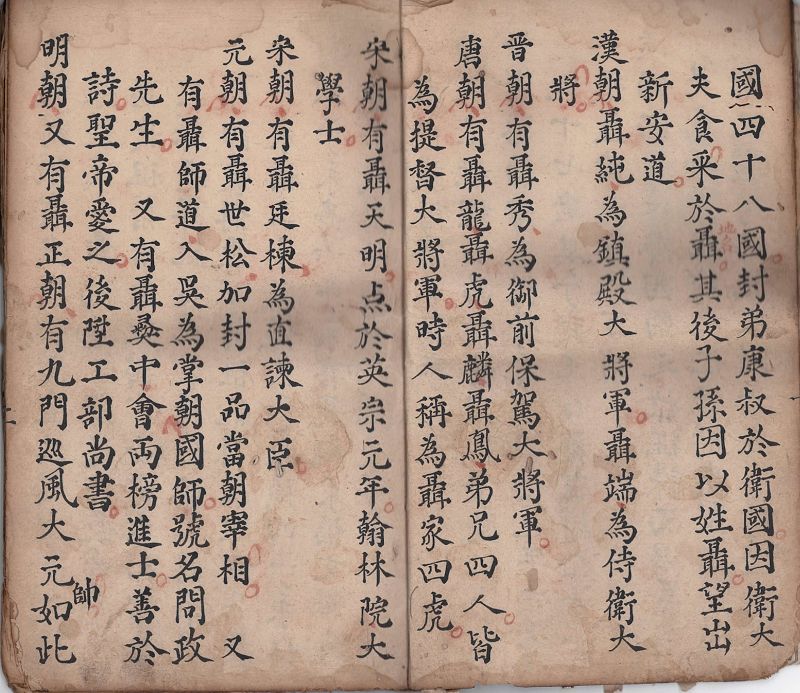 國四十八國封弟康叔於衛國因衛大
夫食采於聶其後子孫因以姓聶望出
新安道
漢朝聶純為鎮殿大將軍聶端為侍衛大
將
晋朝有聶秀為御前保駕大將軍
唐朝有聶龍聶虎聶麟聶鳳弟兄四人皆
為提督大將軍時人稱為聶家四虎
宋朝有聶天明点於英宗元年翰林院大
學士
宋朝有聶廷棟為直諫大臣
元朝有聶世松加封一品當朝宰相 又
有聶師道入吳為掌朝國師號名問政
先生 又有聶彝中會両榜進士善於
詩聖帝愛之後陞工部尚書
明朝又有聶正朝有九門巡風大元帥如此